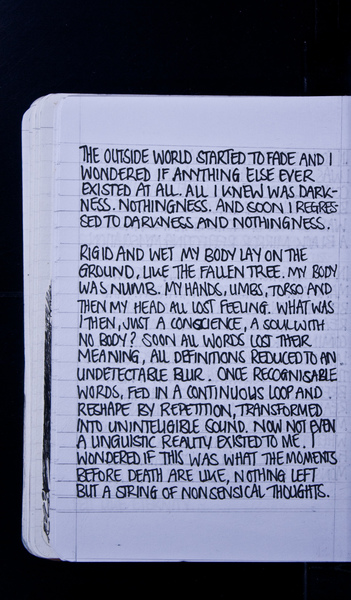 THE OUTSIDE WORLD STARTED TO FADE AND I
WONDERED IF ANYTHING ELSE EVER
EXISTED AT ALL. ALL I KNEW WAS DARK-
NESS. NOTHINGNESS. AND SOON I REGRES-
SED TO DARKNESS AND NOTHINGNESS.
RIGID AND WET MY BODY LAY ON THE
GROUND, LIKE THE FALLEN TREE. MY BODY
WAS NUMB. MY HANDS, LIMBS, TORSO AND
THEN MY HEAD ALL LOST FEELING. WHAT WAS
I THEN, JUST A CONSCIENCE, A SOUL WITH
NO BODY? SOON ALL WORDS LOST THEIR
MEANING, ALL DEFINITIONS REDUCED TO AN
UNDETECTABLE BLUR. ONCE RECOGNISABLE
WORDS, FED IN A CONTINUOUS LOOP AND
RESHAPE BY REPETITION, TRANSFORMED
INTO UNINTELIGIBLE SOUND. NOW NOT EVEN
A LINGUISTIC REALITY EXISTED TO ME. I
WONDERED IF THIS WAS WHAT THE MOMENTS
BEFORE DEATH ARE LIKE, NOTHING LEFT
BUT A STRING OF NONSENSICAL THOUGHTS.